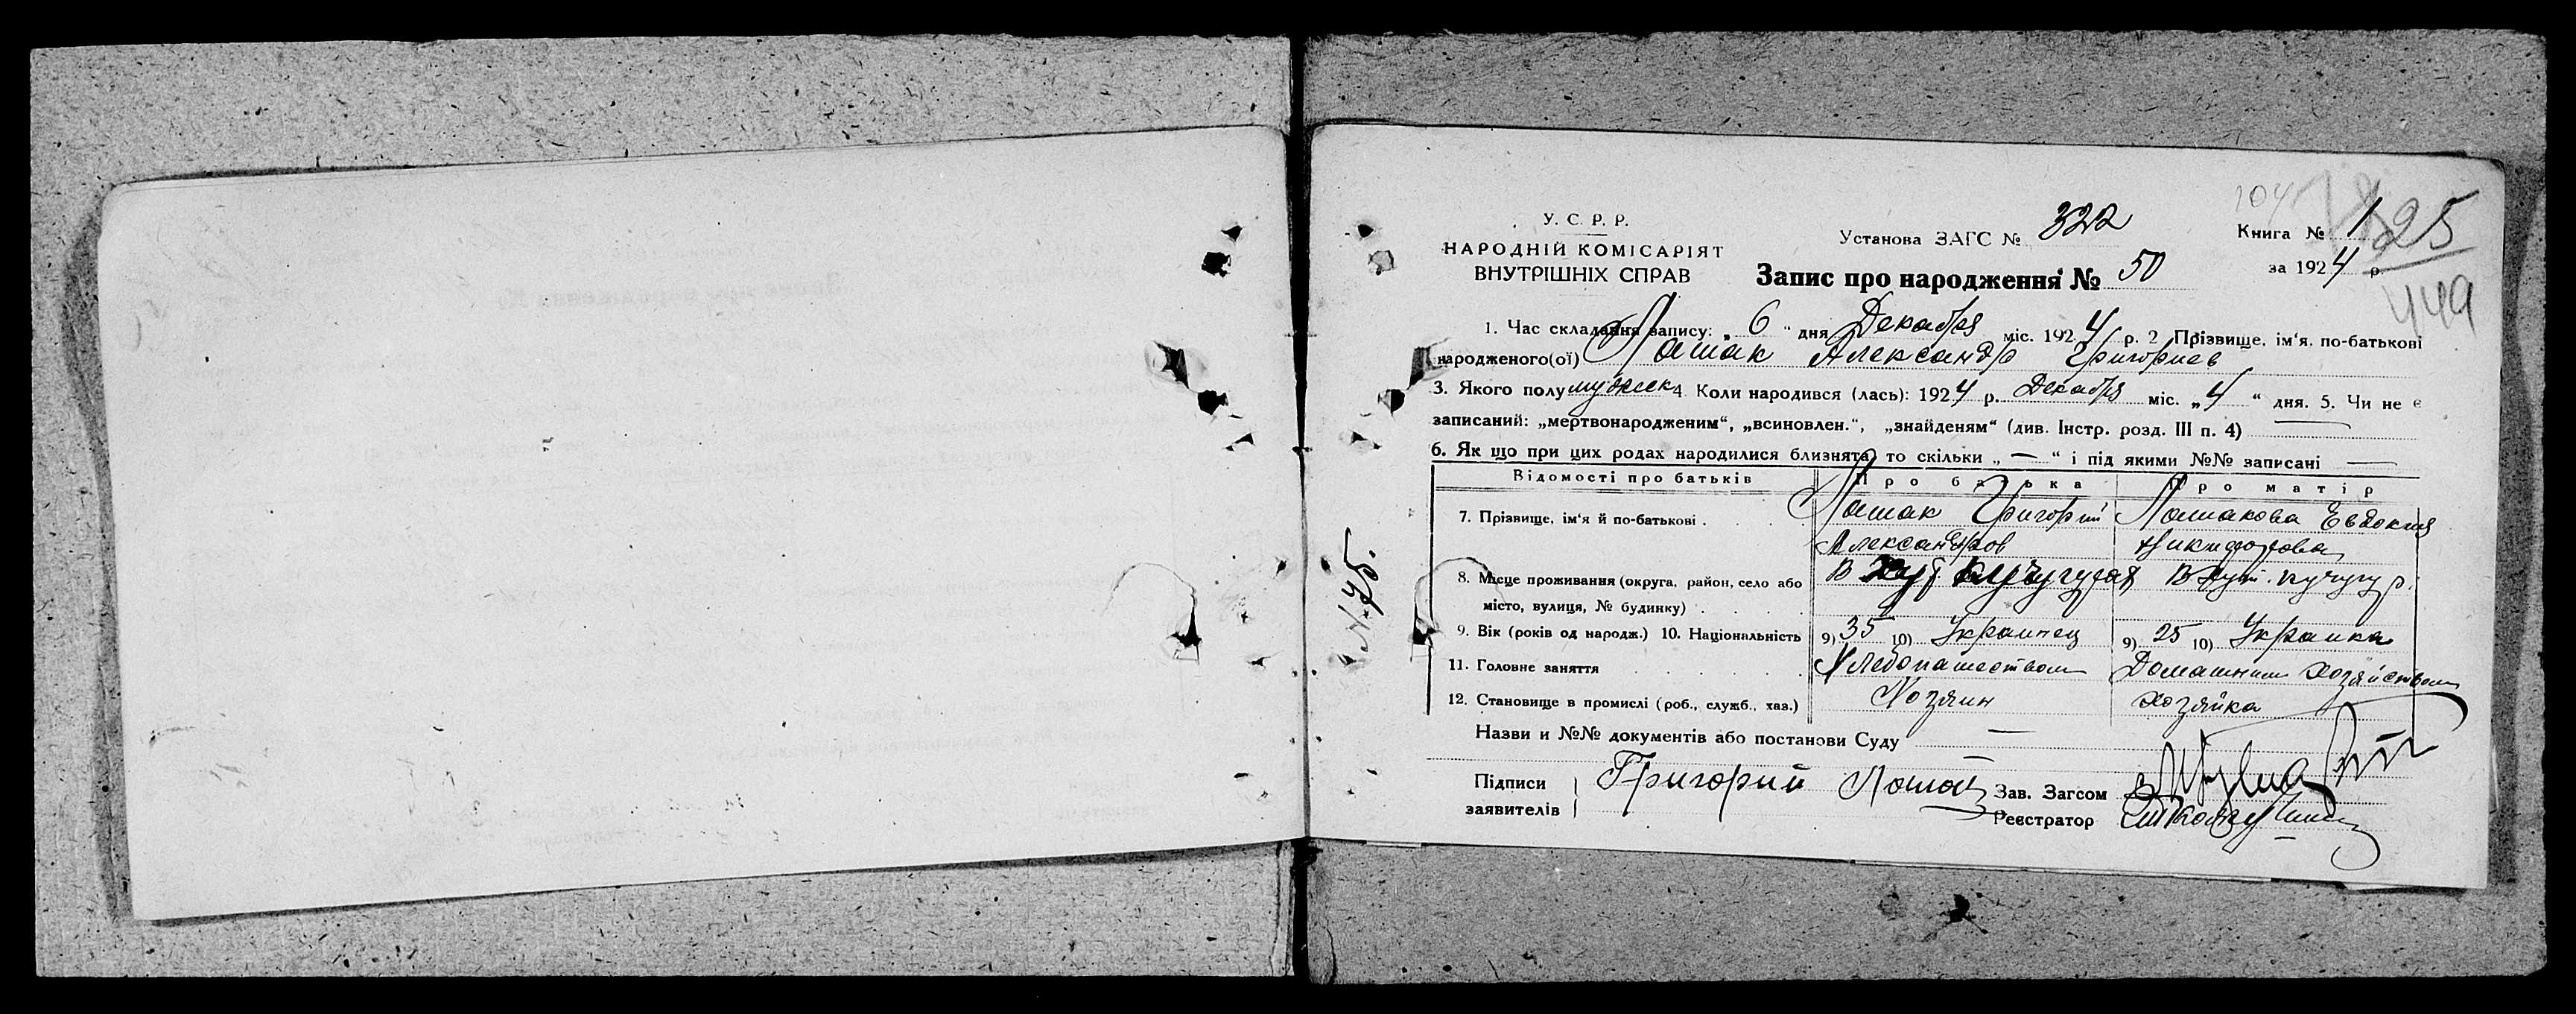 104
У. С. Р. Р.
НАРОДНІЙ КОМІСАРІЯТ
ВНУТРІШНІХ СПРАВ
Установа ЗАГС № 322
Книга № 1
25
Запис про народження № 50
за 1924 р.
449
1. Час складання запису: „ 6 “ дня Декабря міс. 1924 р. 2 Прізвище, ім‘я, по-батькові
народженого(ої) Лашак Александр Григориев
3. Якого полу мужеск 4. Коли народився (лась): 1924 р. Декабря міс. „ 4 “ дня. 5. Чи не є
записаний: „мертвонародженим“, „всиновлен.“, „знайденям“ (див. Інстр. розд. III п. 4) —
6. Як що при цих родах народилися близнята, то скільки „ — “ і під якими №№ записані —
Відомості про батьків Про батька Про матір
7. Прізвище, ім‘я й по-батькові . Лашак Григорий Лашакова Евдокия
Александров Никифорова
8. Місце проживання (округа, район, село або В хут Кучугурах В хут. Кучугур.
місто, вулиця, № будинку) . . . .
9. Вік (років од народж.) 10. Національність 9) 35 10) Украинец 9) 25 10) Украинка
11. Головне заняття Хлебопашеством Домашним хозяйством
12. Становище в промислі (роб., служб., хаз.) Хозяин Хозяйка
Назви и №№ документів або постанови Суду —
Підписи
заявителів
Григорий Лошак
Зав. Загсом
Реєстратор